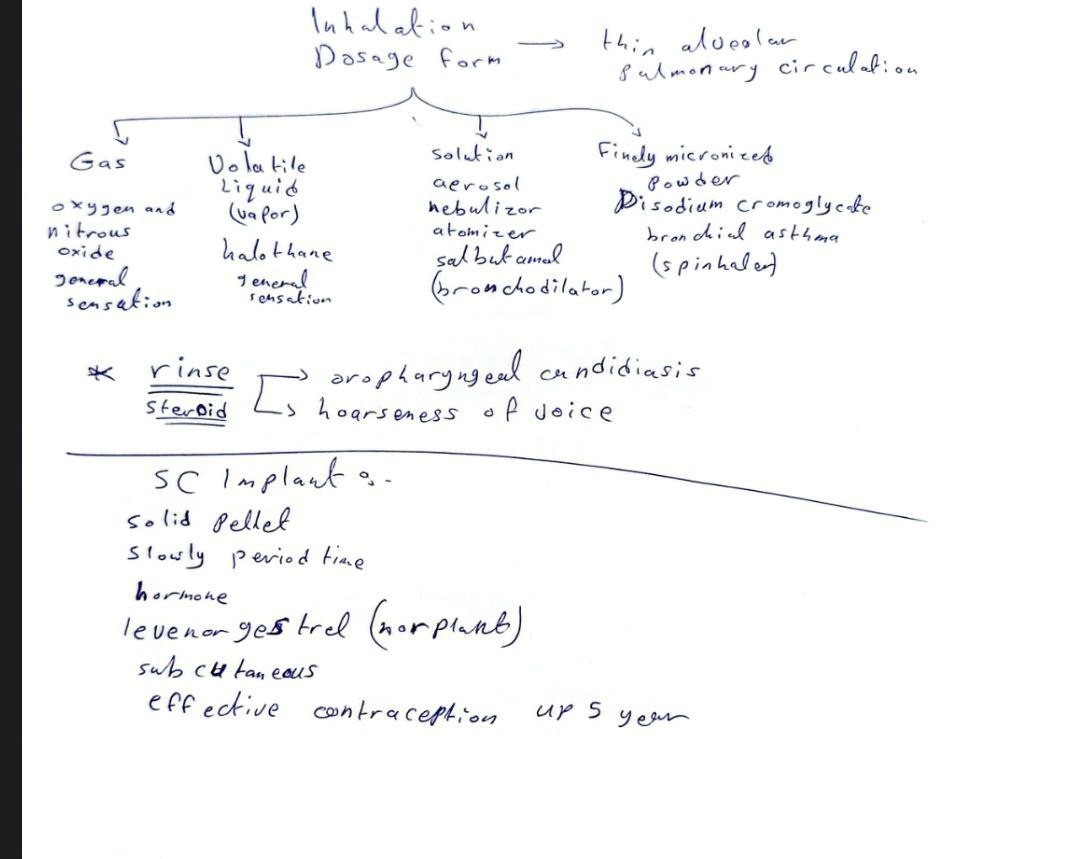 Inhalation
Dosage form → thin alveolar
pulmonary circulation
Gas
oxygen and
nitrous
oxide
general
sensation
Volatile
Liquid
(vapor)
halothane
general
sensation
solution
aerosol
nebulizor
atomizer
salbutamol
(bronchodilator)
Finely micronized
Powder
Disodium cromoglycate
bronchial asthma
(spinhaler)
* rinse → oropharyngeal candidiasis
steroid → hoarseness of voice
SC Implant :-
solid pellet
slowly period time
hormone
levenorgestrel (norplant)
subcutaneous
effective contraception up 5 year